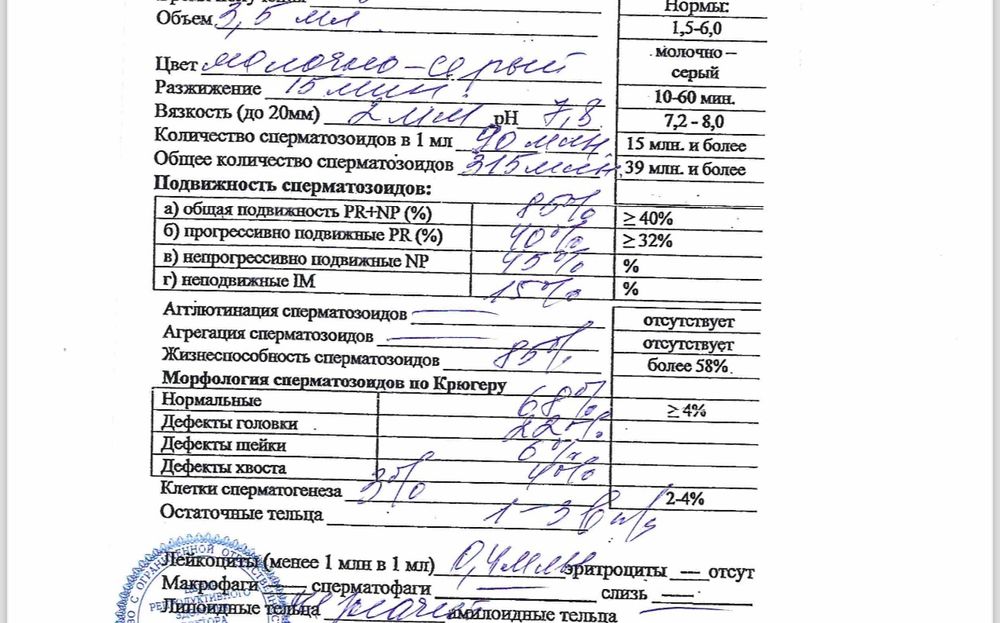 Нормы:
Объем 3,5 мл 1,5-6,0
Цвет молочно-серый молочно – серый
Разжижение 15 мин. 10-60 мин.
Вязкость (до 20мм) 2 мм pH 7,8 7,2 - 8,0
Количество сперматозоидов в 1 мл 90 млн. 15 млн. и более
Общее количество сперматозоидов 315 млн. 39 млн. и более
Подвижность сперматозоидов:
а) общая подвижность PR+NP (%) 85% ≥ 40%
б) прогрессивно подвижные PR (%) 40% ≥ 32%
в) непрогрессивно подвижные NP 45% %
г) неподвижные IM 15% %
Агглютинация сперматозоидов — отсутствует
Агрегация сперматозоидов — отсутствует
Жизнеспособность сперматозоидов 85% более 58%
Морфология сперматозоидов по Крюгеру
Нормальные 68% ≥ 4%
Дефекты головки 22%
Дефекты шейки 6%
Дефекты хвоста 4%
Клетки сперматогенеза 3% 2-4%
Остаточные тельца 1-3 в п/з
Лейкоциты (менее 1 млн в 1 мл) 0,4 млн эритроциты — отсут
Макрофаги — сперматофаги — слизь —
Липоидные тельца амилоидные тельца